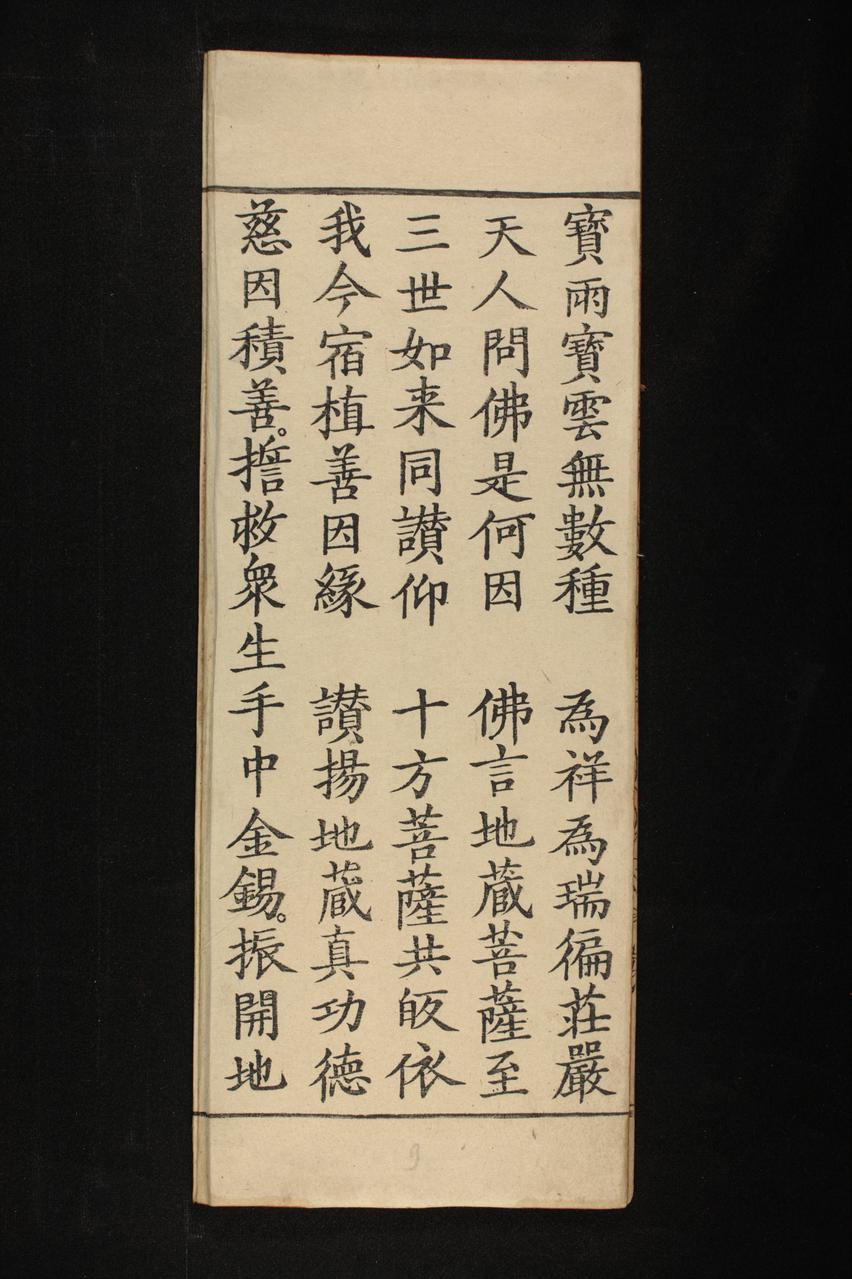 寶雨寶雲無數種　為祥為瑞徧莊嚴
天人問佛是何因　佛言地蔵菩薩至
三世如来同讃仰　十方菩薩共皈依
我今宿植善因緣　讃揚地蔵真功德
慈因積善。擔救衆生手中金錫。振開地
9